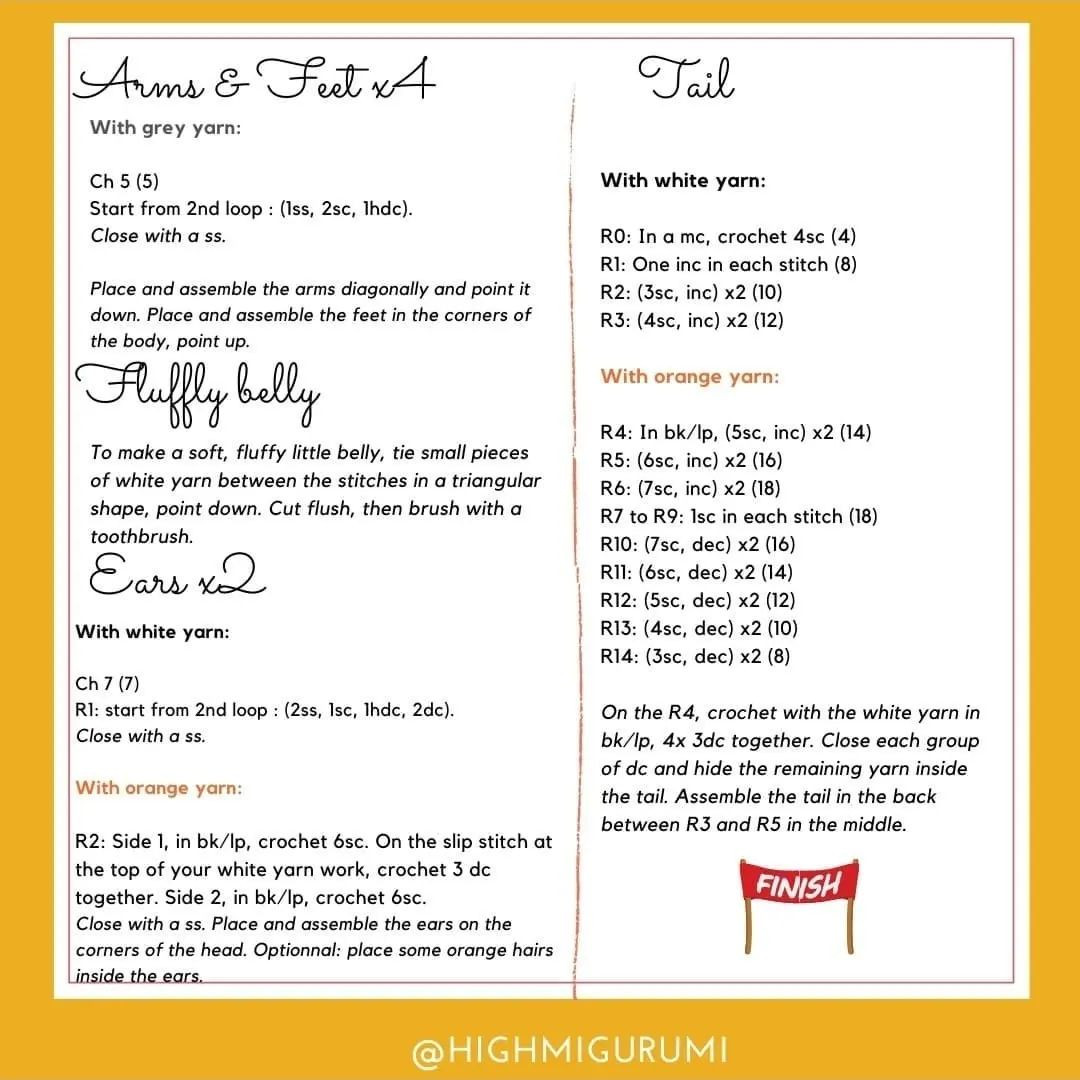 Arms & Feet x4
With grey yarn:
Ch 5 (5)
Start from 2nd loop : (1ss, 2sc, 1hdc).
Close with a ss.
Place and assemble the arms diagonally and point it
down. Place and assemble the feet in the corners of
the body, point up.
Fluffly belly
To make a soft, fluffy little belly, tie small pieces
of white yarn between the stitches in a triangular
shape, point down. Cut flush, then brush with a
toothbrush.
Ears x2
With white yarn:
Ch 7 (7)
R1: start from 2nd loop : (2ss, 1sc, 1hdc, 2dc).
Close with a ss.
With orange yarn:
R2: Side 1, in bk/lp, crochet 6sc. On the slip stitch at
the top of your white yarn work, crochet 3 dc
together. Side 2, in bk/lp, crochet 6sc.
Close with a ss. Place and assemble the ears on the
corners of the head. Optionnal: place some orange hairs
inside the ears.
Tail
With white yarn:
R0: In a mc, crochet 4sc (4)
R1: One inc in each stitch (8)
R2: (3sc, inc) x2 (10)
R3: (4sc, inc) x2 (12)
With orange yarn:
R4: In bk/lp, (5sc, inc) x2 (14)
R5: (6sc, inc) x2 (16)
R6: (7sc, inc) x2 (18)
R7 to R9: 1sc in each stitch (18)
R10: (7sc, dec) x2 (16)
R11: (6sc, dec) x2 (14)
R12: (5sc, dec) x2 (12)
R13: (4sc, dec) x2 (10)
R14: (3sc, dec) x2 (8)
On the R4, crochet with the white yarn in
bk/lp, 4x 3dc together. Close each group
of dc and hide the remaining yarn inside
the tail. Assemble the tail in the back
between R3 and R5 in the middle.
FINISH
@HIGHMIGURUMI